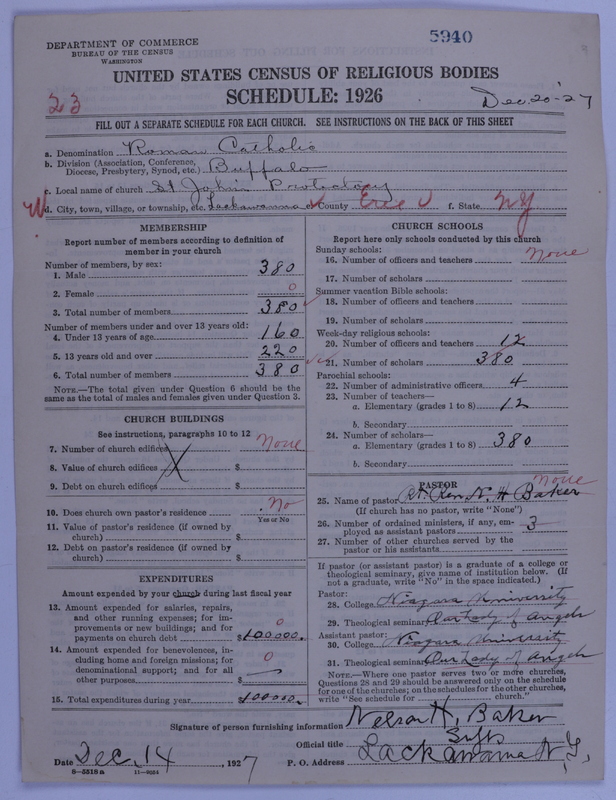 5940
DEPARTMENT OF COMMERCE
BUREAU OF THE CENSUS
WASHINGTON
UNITED STATES CENSUS OF RELIGIOUS BODIES
23
SCHEDULE: 1926
Dec. 20-'27
FILL OUT A SEPARATE SCHEDULE FOR EACH CHURCH. SEE INSTRUCTIONS ON THE BACK OF THIS SHEET
a. Denomination Roman Catholic
b. Division (Association, Conference, Diocese, Presbytery, Synod, etc.) Buffalo
c. Local name of church St John's Protectory
d. City, town, village, or township, etc. Lackawanna e. County Erie f. State NY
MEMBERSHIP
Report number of members according to definition of member in your church
Number of members, by sex:
1. Male 380
2. Female 0
3. Total number of members 380
Number of members under and over 13 years old:
4. Under 13 years of age 160
5. 13 years old and over 220
6. Total number of members 380
NOTE.—The total given under Question 6 should be the same as the total of males and females given under Question 3.
CHURCH BUILDINGS
See instructions, paragraphs 10 to 12
7. Number of church edifices None
8. Value of church edifices $
9. Debt on church edifices $
10. Does church own pastor's residence No
Yes or No
11. Value of pastor's residence (if owned by church) $
12. Debt on pastor's residence (if owned by church) $
EXPENDITURES
Amount expended by your church during last fiscal year
13. Amount expended for salaries, repairs, and other running expenses; for improvements or new buildings; and for payments on church debt 0 $100000.
14. Amount expended for benevolences, including home and foreign missions; for denominational support; and for all other purposes 0 $
15. Total expenditures during year $100000.
CHURCH SCHOOLS
Report here only schools conducted by this church
Sunday schools:
16. Number of officers and teachers None
17. Number of scholars
Summer vacation Bible schools:
18. Number of officers and teachers
19. Number of scholars
Week-day religious schools:
20. Number of officers and teachers 12
21. Number of scholars 380
Parochial schools:
22. Number of administrative officers 4
23. Number of teachers—
a. Elementary (grades 1 to 8) 12
b. Secondary
24. Number of scholars—
a. Elementary (grades 1 to 8) 380
b. Secondary
PASTOR
None
25. Name of pastor Rt. Rev. N. H Baker
(If church has no pastor, write "None")
26. Number of ordained ministers, if any, employed as assistant pastors 3
27. Number of other churches served by the pastor or his assistants
If pastor (or assistant pastor) is a graduate of a college or theological seminary, give name of institution below. (If not a graduate, write "No" in the space indicated.)
Pastor:
28. College Niagara University
29. Theological seminary Our Lady of Angels
Assistant pastor:
30. College Niagara University
31. Theological seminary Our Lady of Angels
NOTE.—Where one pastor serves two or more churches, Questions 28 and 29 should be answered only on the schedule for one of the churches; on the schedules for the other churches, write "See schedule for church."
Signature of person furnishing information Nelson H. Baker
Official title Supt
Date Dec. 14, 1927 P. O. Address Lackawanna N.Y.
8-5518a 11-9053